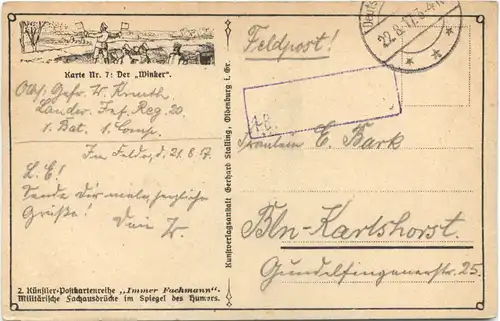 Feldpost!
22.8.17.
Karte Nr. 7: Der „Winker".
Landw. Inf. Reg. 20
1. Bat. 1. Comp.
Im Felde, d. 21.8.17.
L. E!
Sende Dir meine herzliche
Grüße!
Dein W.
2. Künstler-Postkartenreihe „Immer Fachmann".
Militärische Fachausdrücke im Spiegel des Humors.
Kunstverlagsanstalt Gerhard Stalling, Oldenburg i. Gr.
Fräulein E. Bark
Bln-Karlshorst.
Gundelfingenerstr. 25.